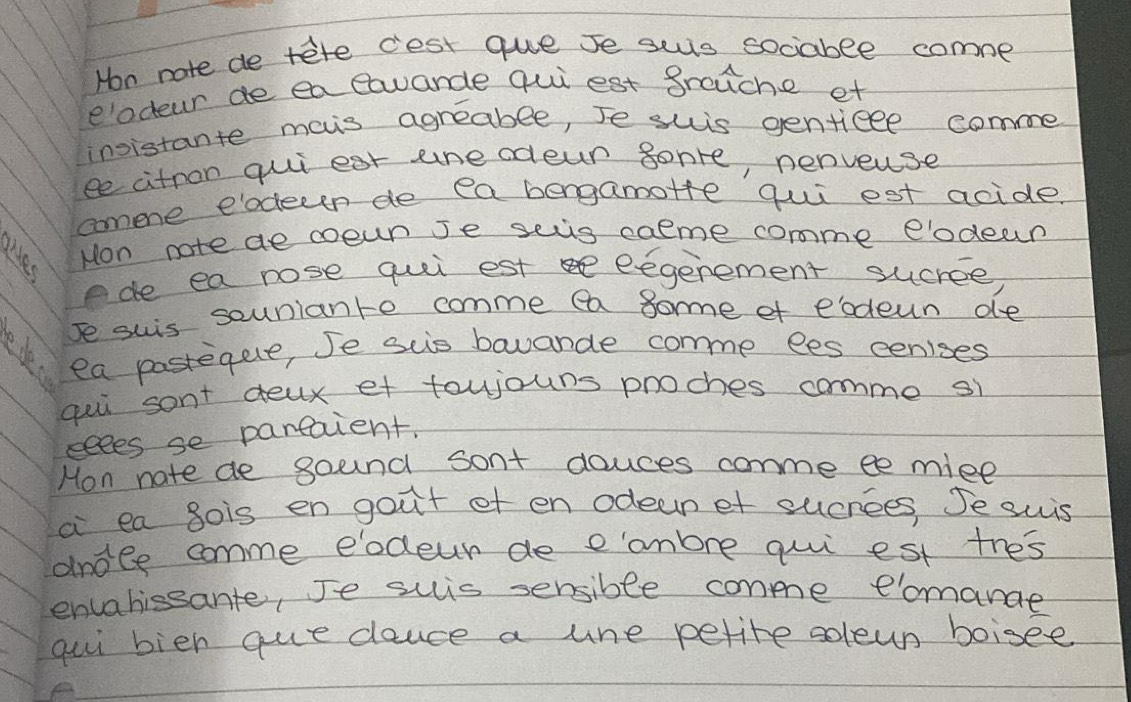 Mon note de tête c'est que Je suis sociable comme
l'odeur de la lavande qui est fraîche et
insistante mais agréable, Je suis gentille comme
le citron qui est une odeur forte, nerveuse
comme l'odeur de la bergamotte qui est acide.
Mon note de coeur Je suis calme comme l'odeur
de la rose qui est légèrement sucrée,
Je suis souriante comme la forme et l'odeur de
la pastèque, Je suis bavarde comme les cerises
qui sont deux et toujours proches comme si
elles se parlaient.
Mon note de found sont douces comme le miel
à la fois en goût et en odeur et sucrées, Je suis
drôle comme l'odeur de l'ambre qui est très
envahissante, Je suis sensible comme l'amande
qui bien que douce a une petite odeur boisée